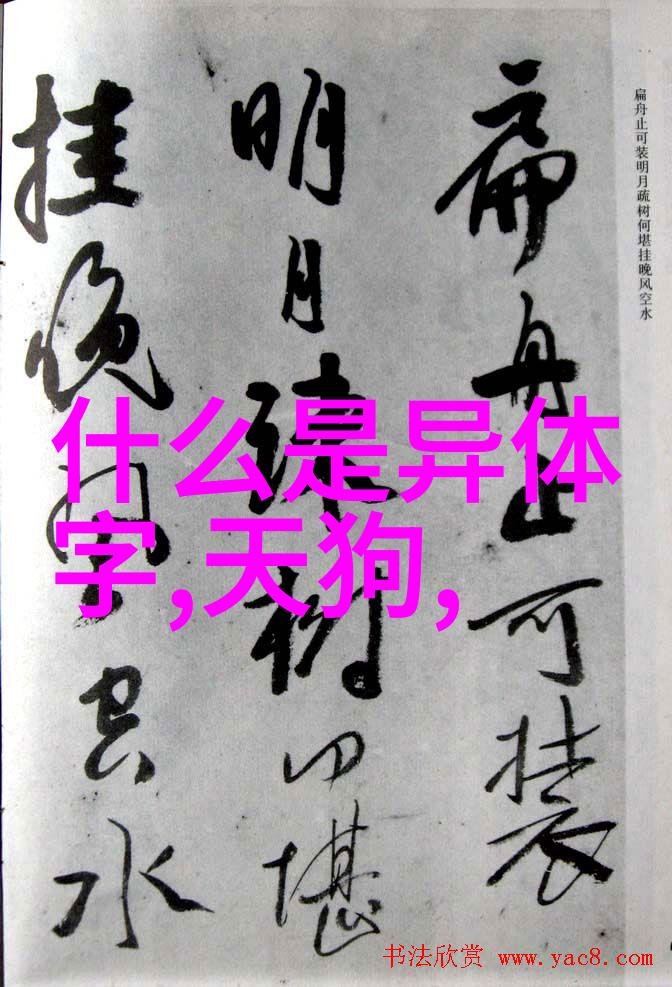 扁舟止可装
明月疏树何堪
挂晚风空水
扁舟止可装明月疏树何堪挂晚风空水
什么是异体
字,天狗,
书法欣赏 www.yac8.com